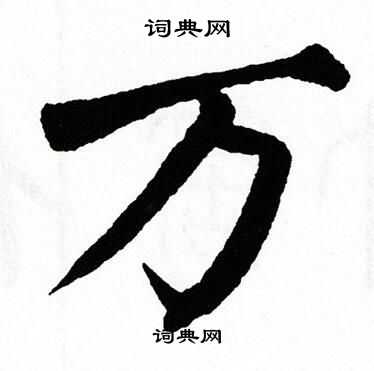 词典网
万
词典网